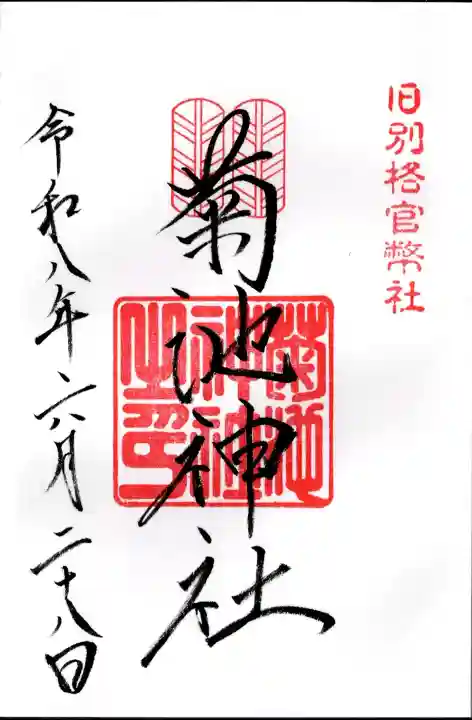 旧別格官幣社
菊池神社
菊池神社之印
令和八年六月二十八日